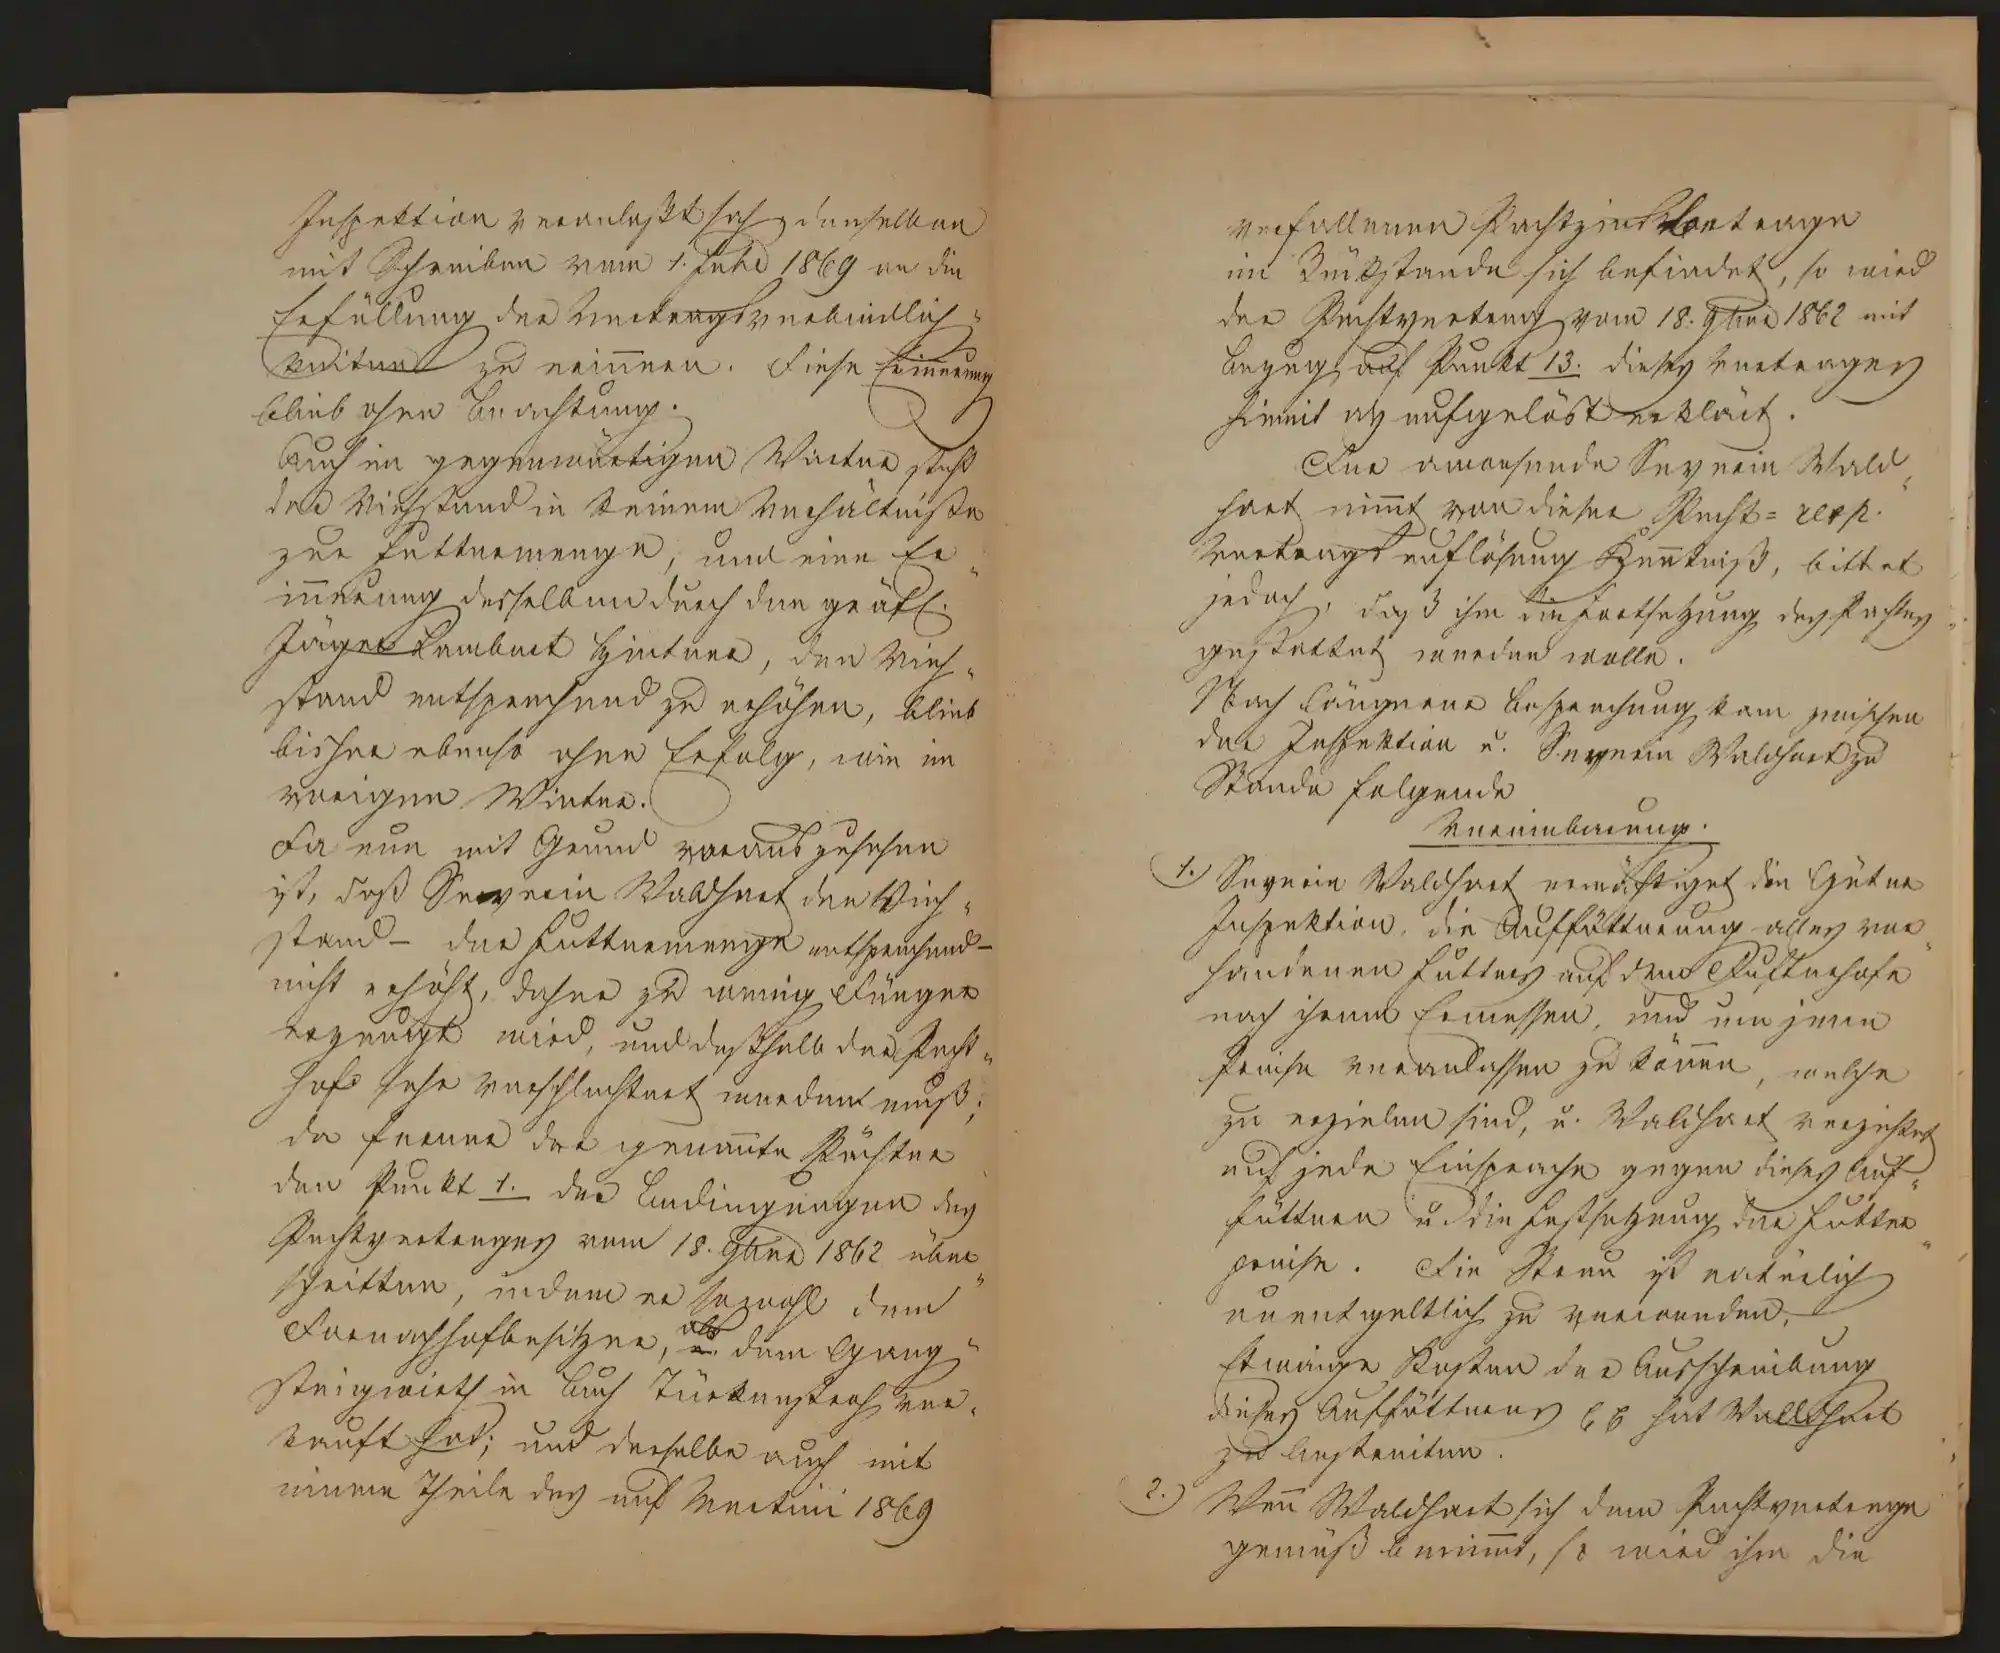 Inspektion veranlaßt sah, denselben
mit Schreiben vom 1. Febr 1869 an die
Erfüllung der Vertragsverbindlich-
keiten zu erinnern. Diese Erinnerung
blieb ohne Beachtung.
Auch im gegenwärtigen Winter steht
der Viehstand in keinem Verhältniße
zur Futtermenge, und eine Er-
innerung desselben durch den gräfl.
Jäger Lambert Hinterer, den Vieh-
stand entsprechend zu erhöhen, blieb
bisher ebenso ohne Erfolg, wie im
vorigen Winter.
Da nun mit Grund vorauszusehen
ist, daß Severin Waldhart den Vieh-
stand – der Futtermenge entsprechend –
nicht erhöht, daher zu wenig Dünger
erzeugt wird, und deßhalb der Pacht-
hof sehr verschlechtert werden muß;
da ferner der genannte Pächter
den Punkt 1. der Bedingungen des
Pachtvertrages vom 18. 9bre 1862 über-
schritten, indem er sowohl dem
Dornachhofbesitzer, als dem Gang-
steigwirth in Buch Türkenstroh ver-
kauft hat; und derselbe auch mit
einem Theile des auf Martini 1869
verfallenen Pachtzinsbetrage
im Rückstande sich befindet, so wird
der Pachtvertrag vom 18. 9bre 1862 mit
Bezug auf Punkt 13. dieses Vertrages
hiemit als aufgelöst erklärt.
Der anwesende Severin Wald-
hart nimmt von dieser Pacht= resp.
Vertragsauflösung Kenntniß, bittet
jedoch, daß ihm die Fortsetzung des Pachtes
gestattet werden wolle.
Nach längerer Besprechung kam zwischen
der Inspektion u. Severin Waldhart zu
Stande folgende
Vereinbarung.
1.) Severin Waldhart ermächtiget die Güter
Inspektion, die Auffütterung alles vor-
handenen Futters auf dem Pachthofe
nach ihrem Ermessen, und um jene
Preise veranlassen zu können, welche
zu erzielen sind, u. Waldhart verzichtet
auf jede Einsprache gegen dieses Auf-
füttern u. die Festsetzung der Futter-
preise. Die Streu ist natürlich
unentgeltlich zu verwenden.
Etwaige Kosten der Ausschreibung
dieses Auffütterns hat Waldhart
zu bestreiten.
2.) Wenn Waldhart sich dem Pachtvertrage
gemäß benimmt, so wird ihm die